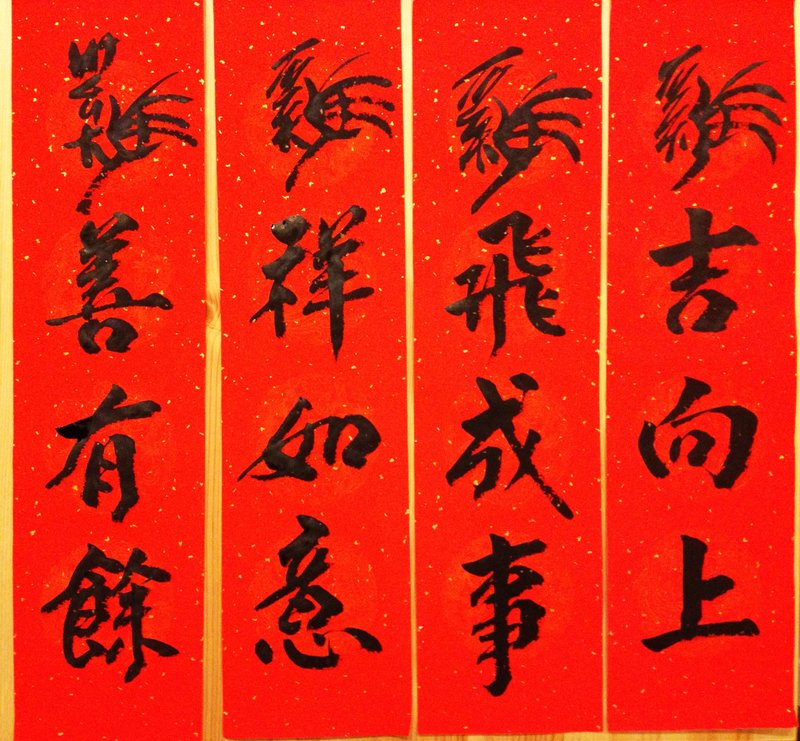 雞吉向上
雞飛成事
雞祥如意
雞善有餘